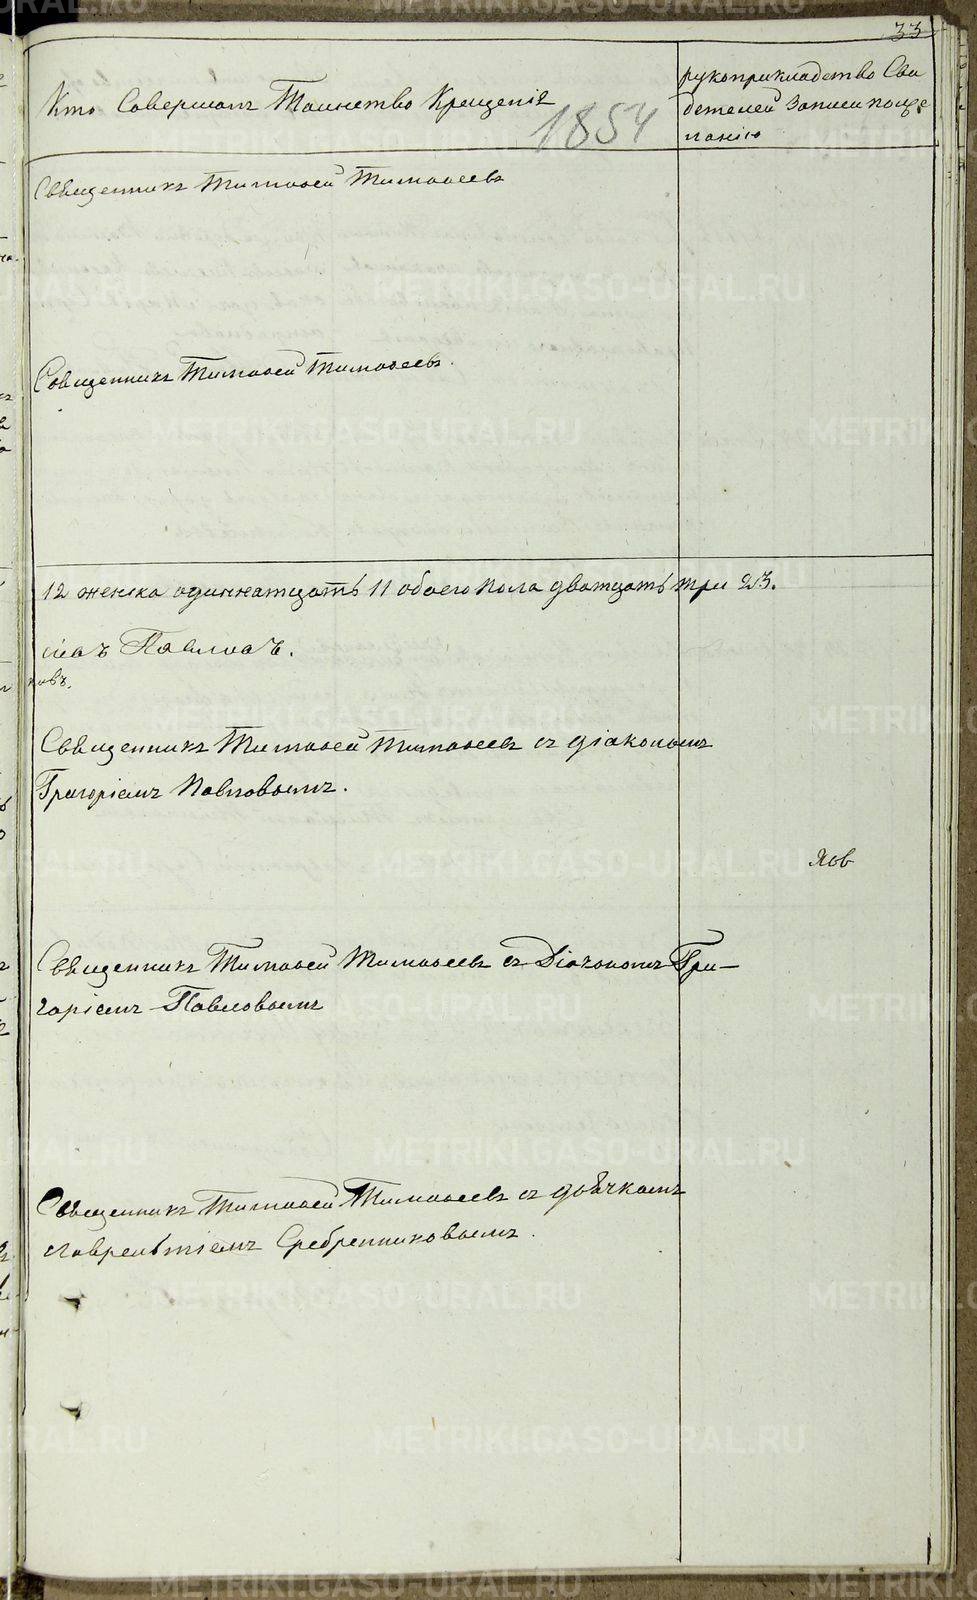 33
Кто Совершалъ Таинство Крещенія
1854
рукоприкладство Сви
детелей Записи по
ланію
Священникъ Тимофей Тимофеевъ
Священникъ Тимофей Тимофеевъ.
12 женска одиннатцать 11 обоего пола дватцать три 23.
Павловъ.
Священникъ Тимофей Тимофеевъ съ діакономъ
Григоріемъ Павловымъ.
Яов
Священникъ Тимофей Тимофеевъ съ Діакономъ Гри-
горіемъ Павловымъ
Священникъ Тимофей Тимофеевъ съ дьячкомъ
Лаврентіемъ Сребренниковымъ.
METRIKI.GASO-URAL.RU